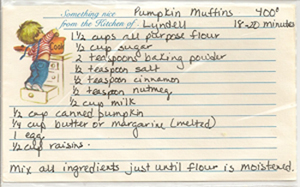 Something nice
from the Kitchen of Lyndell
Pumpkin Muffins 400°
18-20 minutes
1½ cups all purpose flour
½ cup sugar
2 teaspoons baking powder
½ teaspoon salt
½ teaspoon cinnamon
½ teaspoon nutmeg
½ cup milk
½ cup canned pumpkin
¼ cup butter or margarine (melted)
1 egg
½ cup raisins.
Mix all ingredients just until flour is moistened.